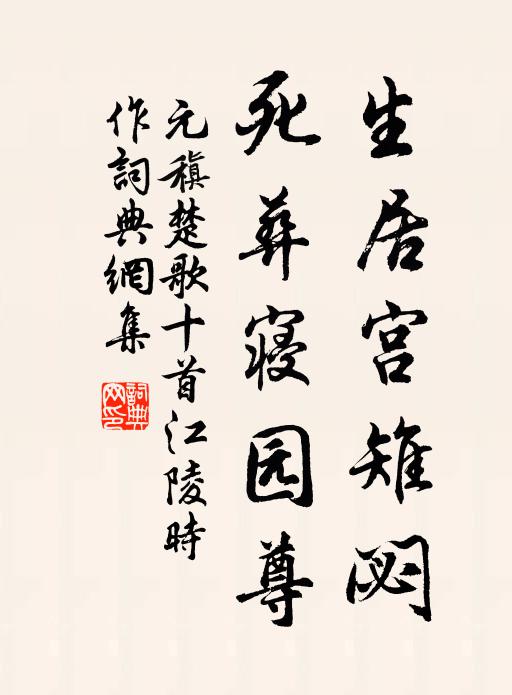 生居宫雉閟
死葬寝园尊
元稹楚歌十首江陵時
作詞典網集
詞典
网印